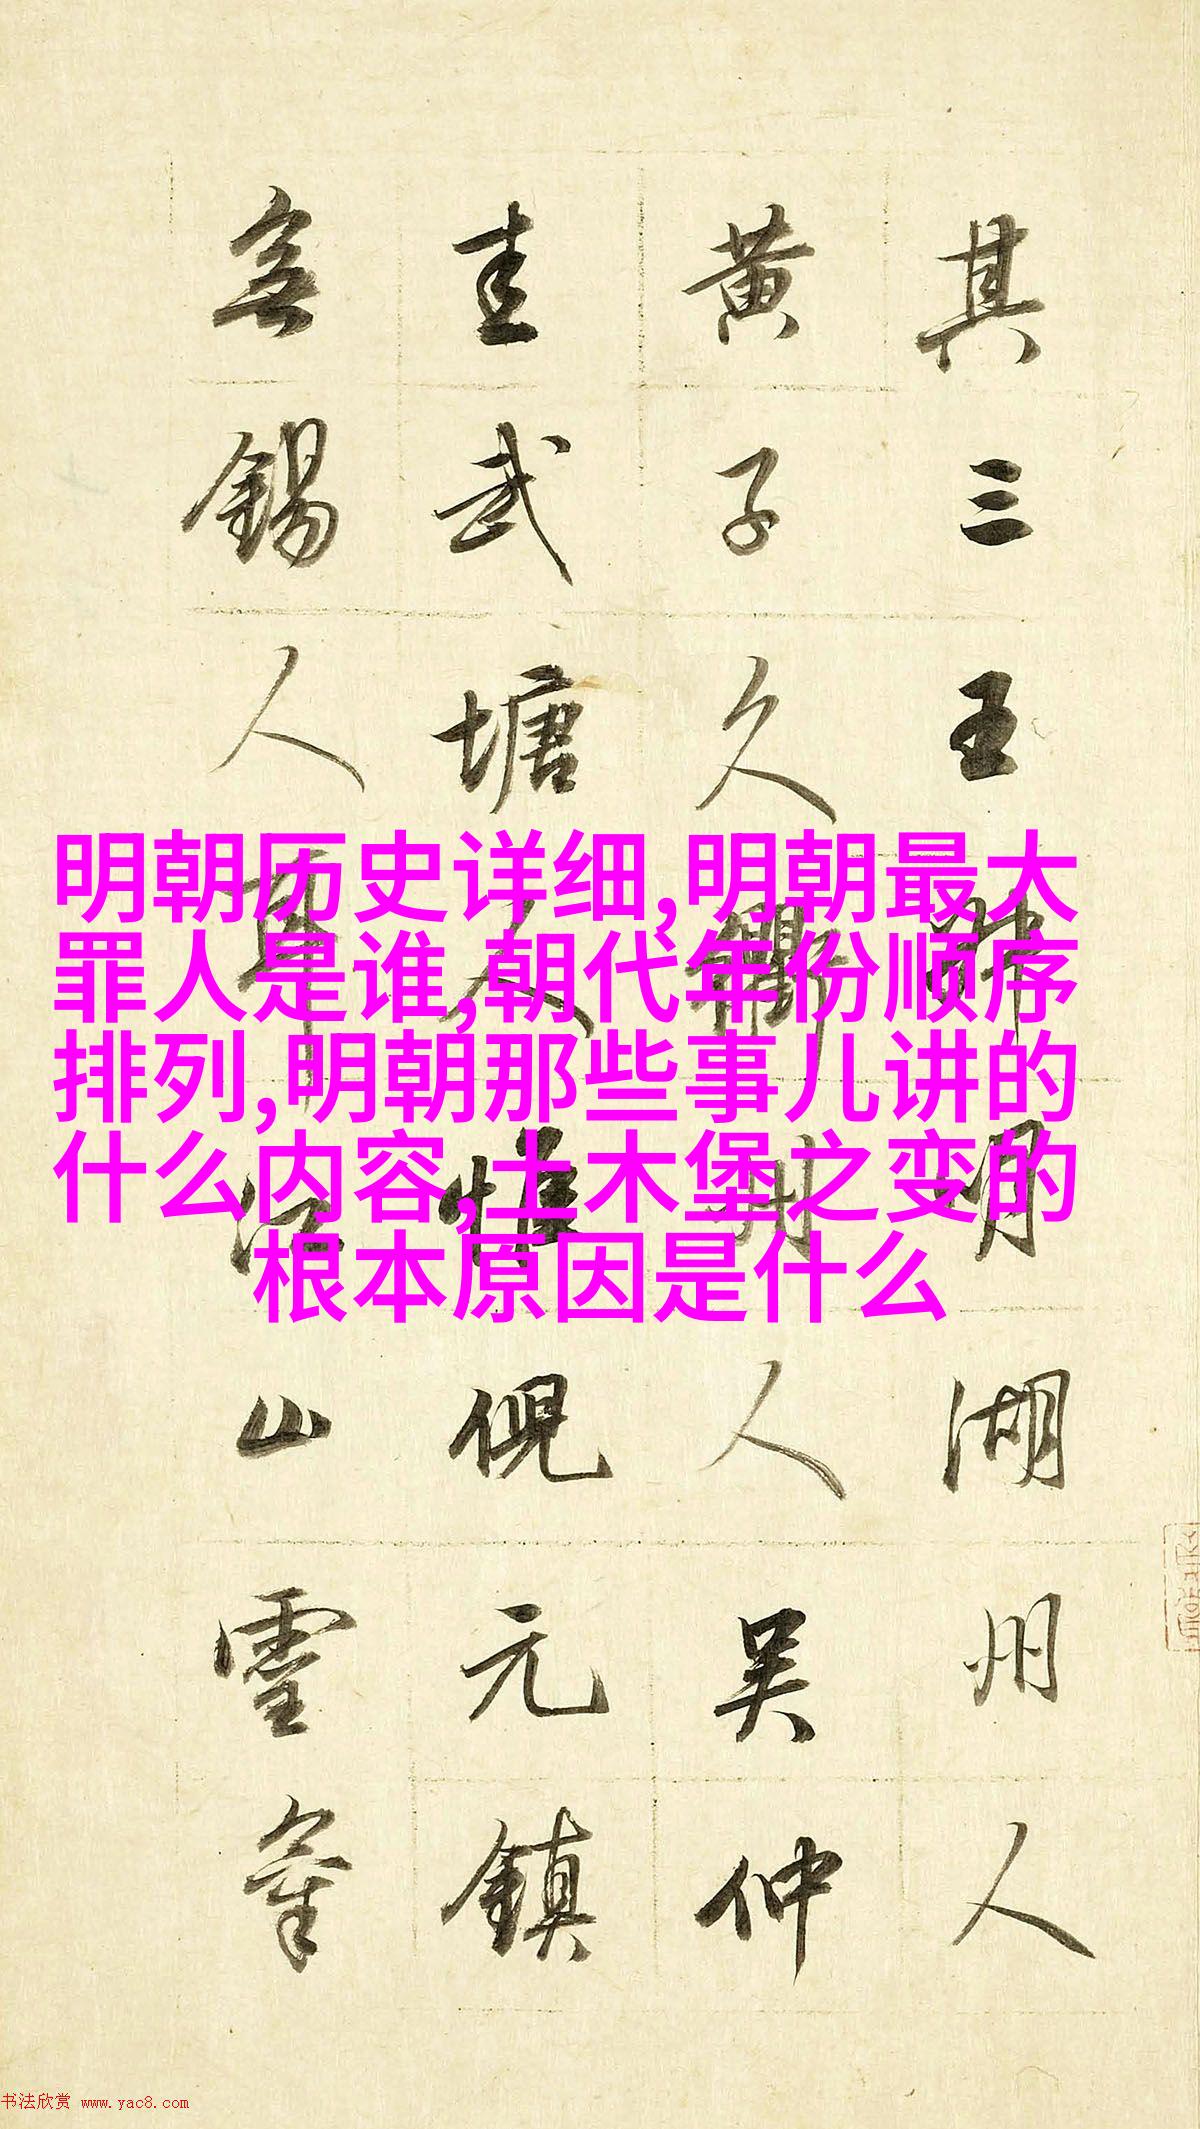 明朝历史详细,明朝最大
罪人是谁,朝代年份顺序
排列,明朝那些事儿讲的
什么内容,土木堡之变的
根本原因是什么
其三王叔明湖州人
黄子久衢州人吴仲
圭武塘人惟倪元鎮
無錫人耳江山靈氣
书法欣赏 www.yac8.com